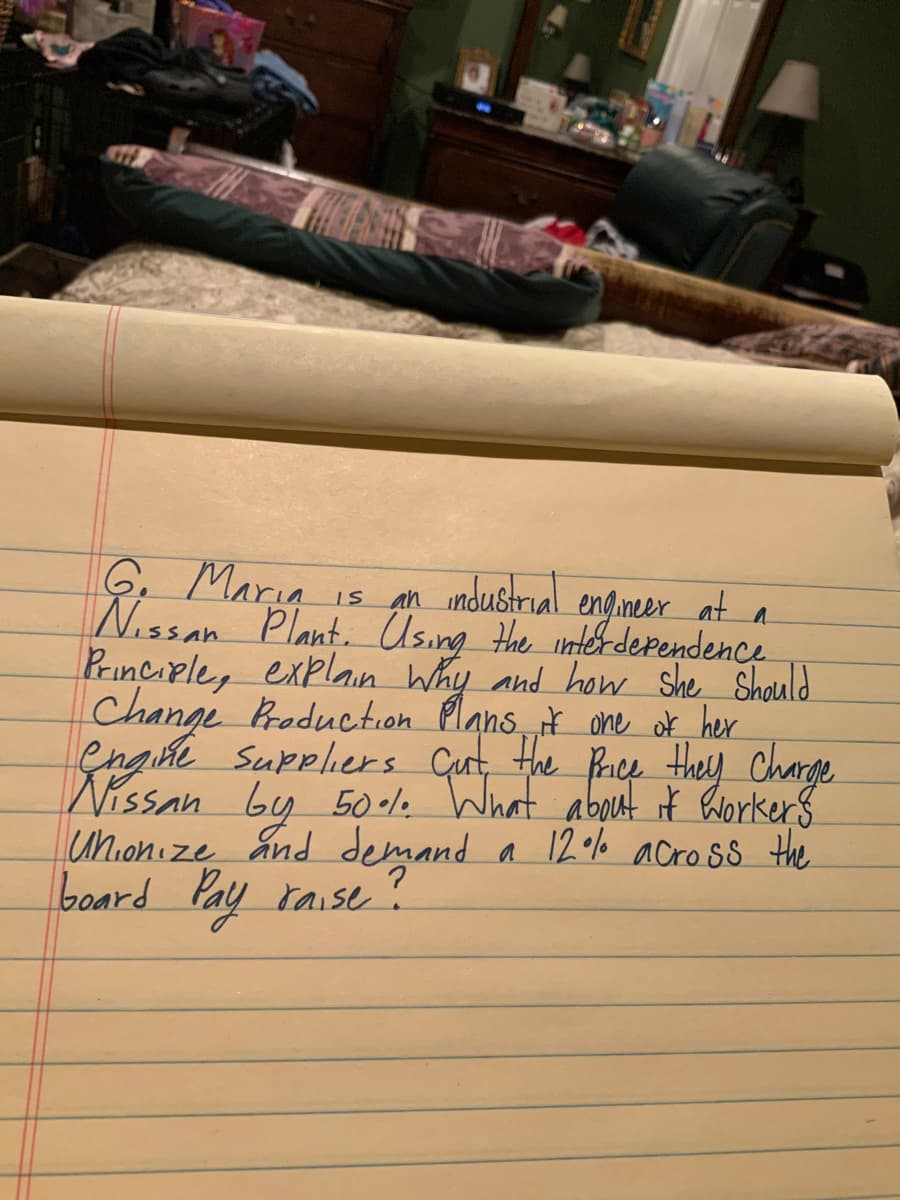 G. Maria is an industrial engineer at a
Nissan Plant. Using the interdependence
Principle, explain why and how she should
Change Production Plans if one of her
engine suppliers cut the Price they Charge
Nissan by 50%. What about if workers
Unionize and demand a 12% across the
board Pay raise?